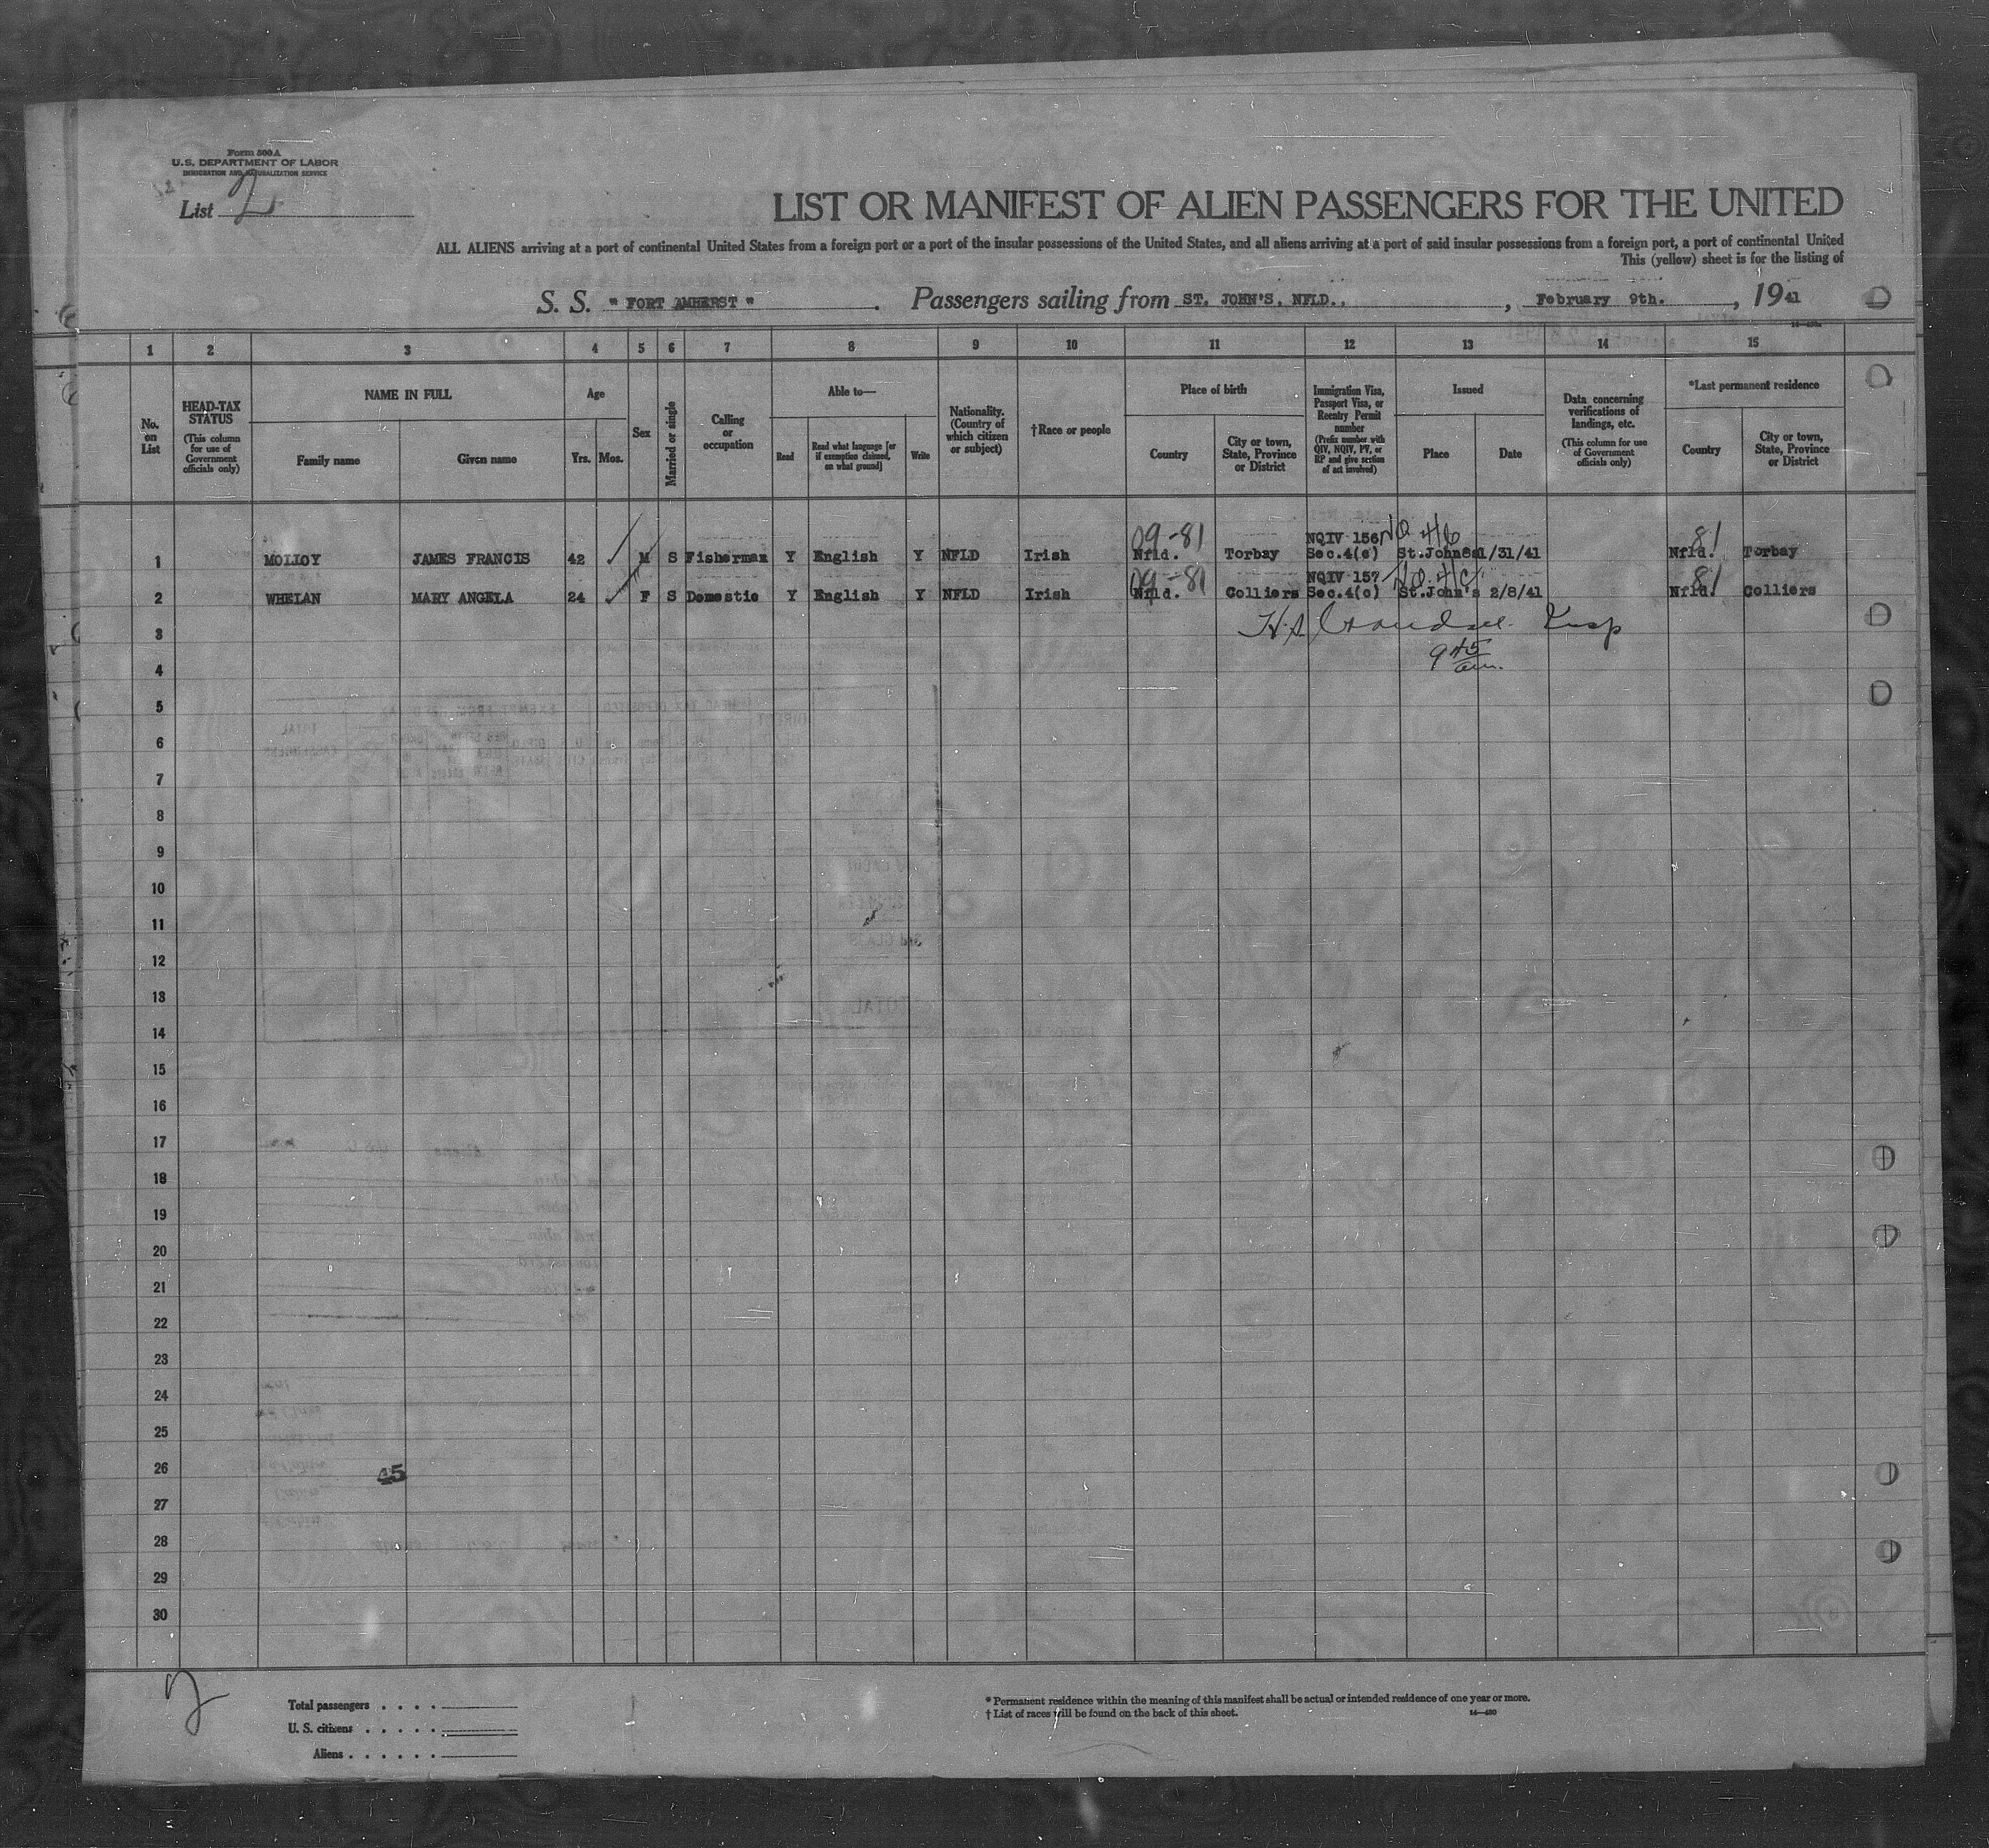 Form 500 A
U.S. DEPARTMENT OF LABOR
IMMIGRATION AND NATURALIZATION SERVICE
List 2
LIST OR MANIFEST OF ALIEN PASSENGERS FOR THE UNITED
ALL ALIENS arriving at a port of continental United States from a foreign port or a port of the insular possessions of the United States, and all aliens arriving at a port of said insular possessions from a foreign port, a port of continental United
This (yellow) sheet is for the listing of
S. S. " FORT AMHERST " . Passengers sailing from ST. JOHN'S, NFLD., , February 9th. , 1941
1 2 3 4 5 6 7 8 9 10 11 12 13 14 15
No. on List
HEAD-TAX STATUS (This column for use of Government officials only)
NAME IN FULL
Family name Given name
Age
Yrs. Mos.
Sex
Married or single
Calling or occupation
Able to—
Read
Read what language [or if exemption claimed, on what ground]
Write
Nationality. (Country of which citizen or subject)
†Race or people
Place of birth
Country
City or town, State, Province or District
Immigration Visa, Passport Visa, or Reentry Permit number (Prefix number with QIV, NQIV, PV, or RP and give section of act involved)
Issued
Place Date
Data concerning verifications of landings, etc. (This column for use of Government officials only)
*Last permanent residence
Country
City or town, State, Province or District
09-81 NQIV 156 81
1 MOLLOY JAMES FRANCIS 42 M S Fisherman Y English Y NFLD Irish Nfld. Torbay Sec.4(c) St.John's 1/31/41 Nfld. Torbay
09-81 NQIV 157 81
2 WHELAN MARY ANGELA 24 F S Domestic Y English Y NFLD Irish Nfld. Colliers Sec.4(c) St.John's 2/8/41 Nfld. Colliers
3 Insp
4 9 45 am.
5
6
7
8
9
10
11
12
13
14
15
16
17
18
19
20
21
22
23
24
25
26 45
27
28
29
30
2
Total passengers . . . .
U. S. citizens . . . . .
Aliens . . . . . .
* Permanent residence within the meaning of this manifest shall be actual or intended residence of one year or more.
† List of races will be found on the back of this sheet. 14—430